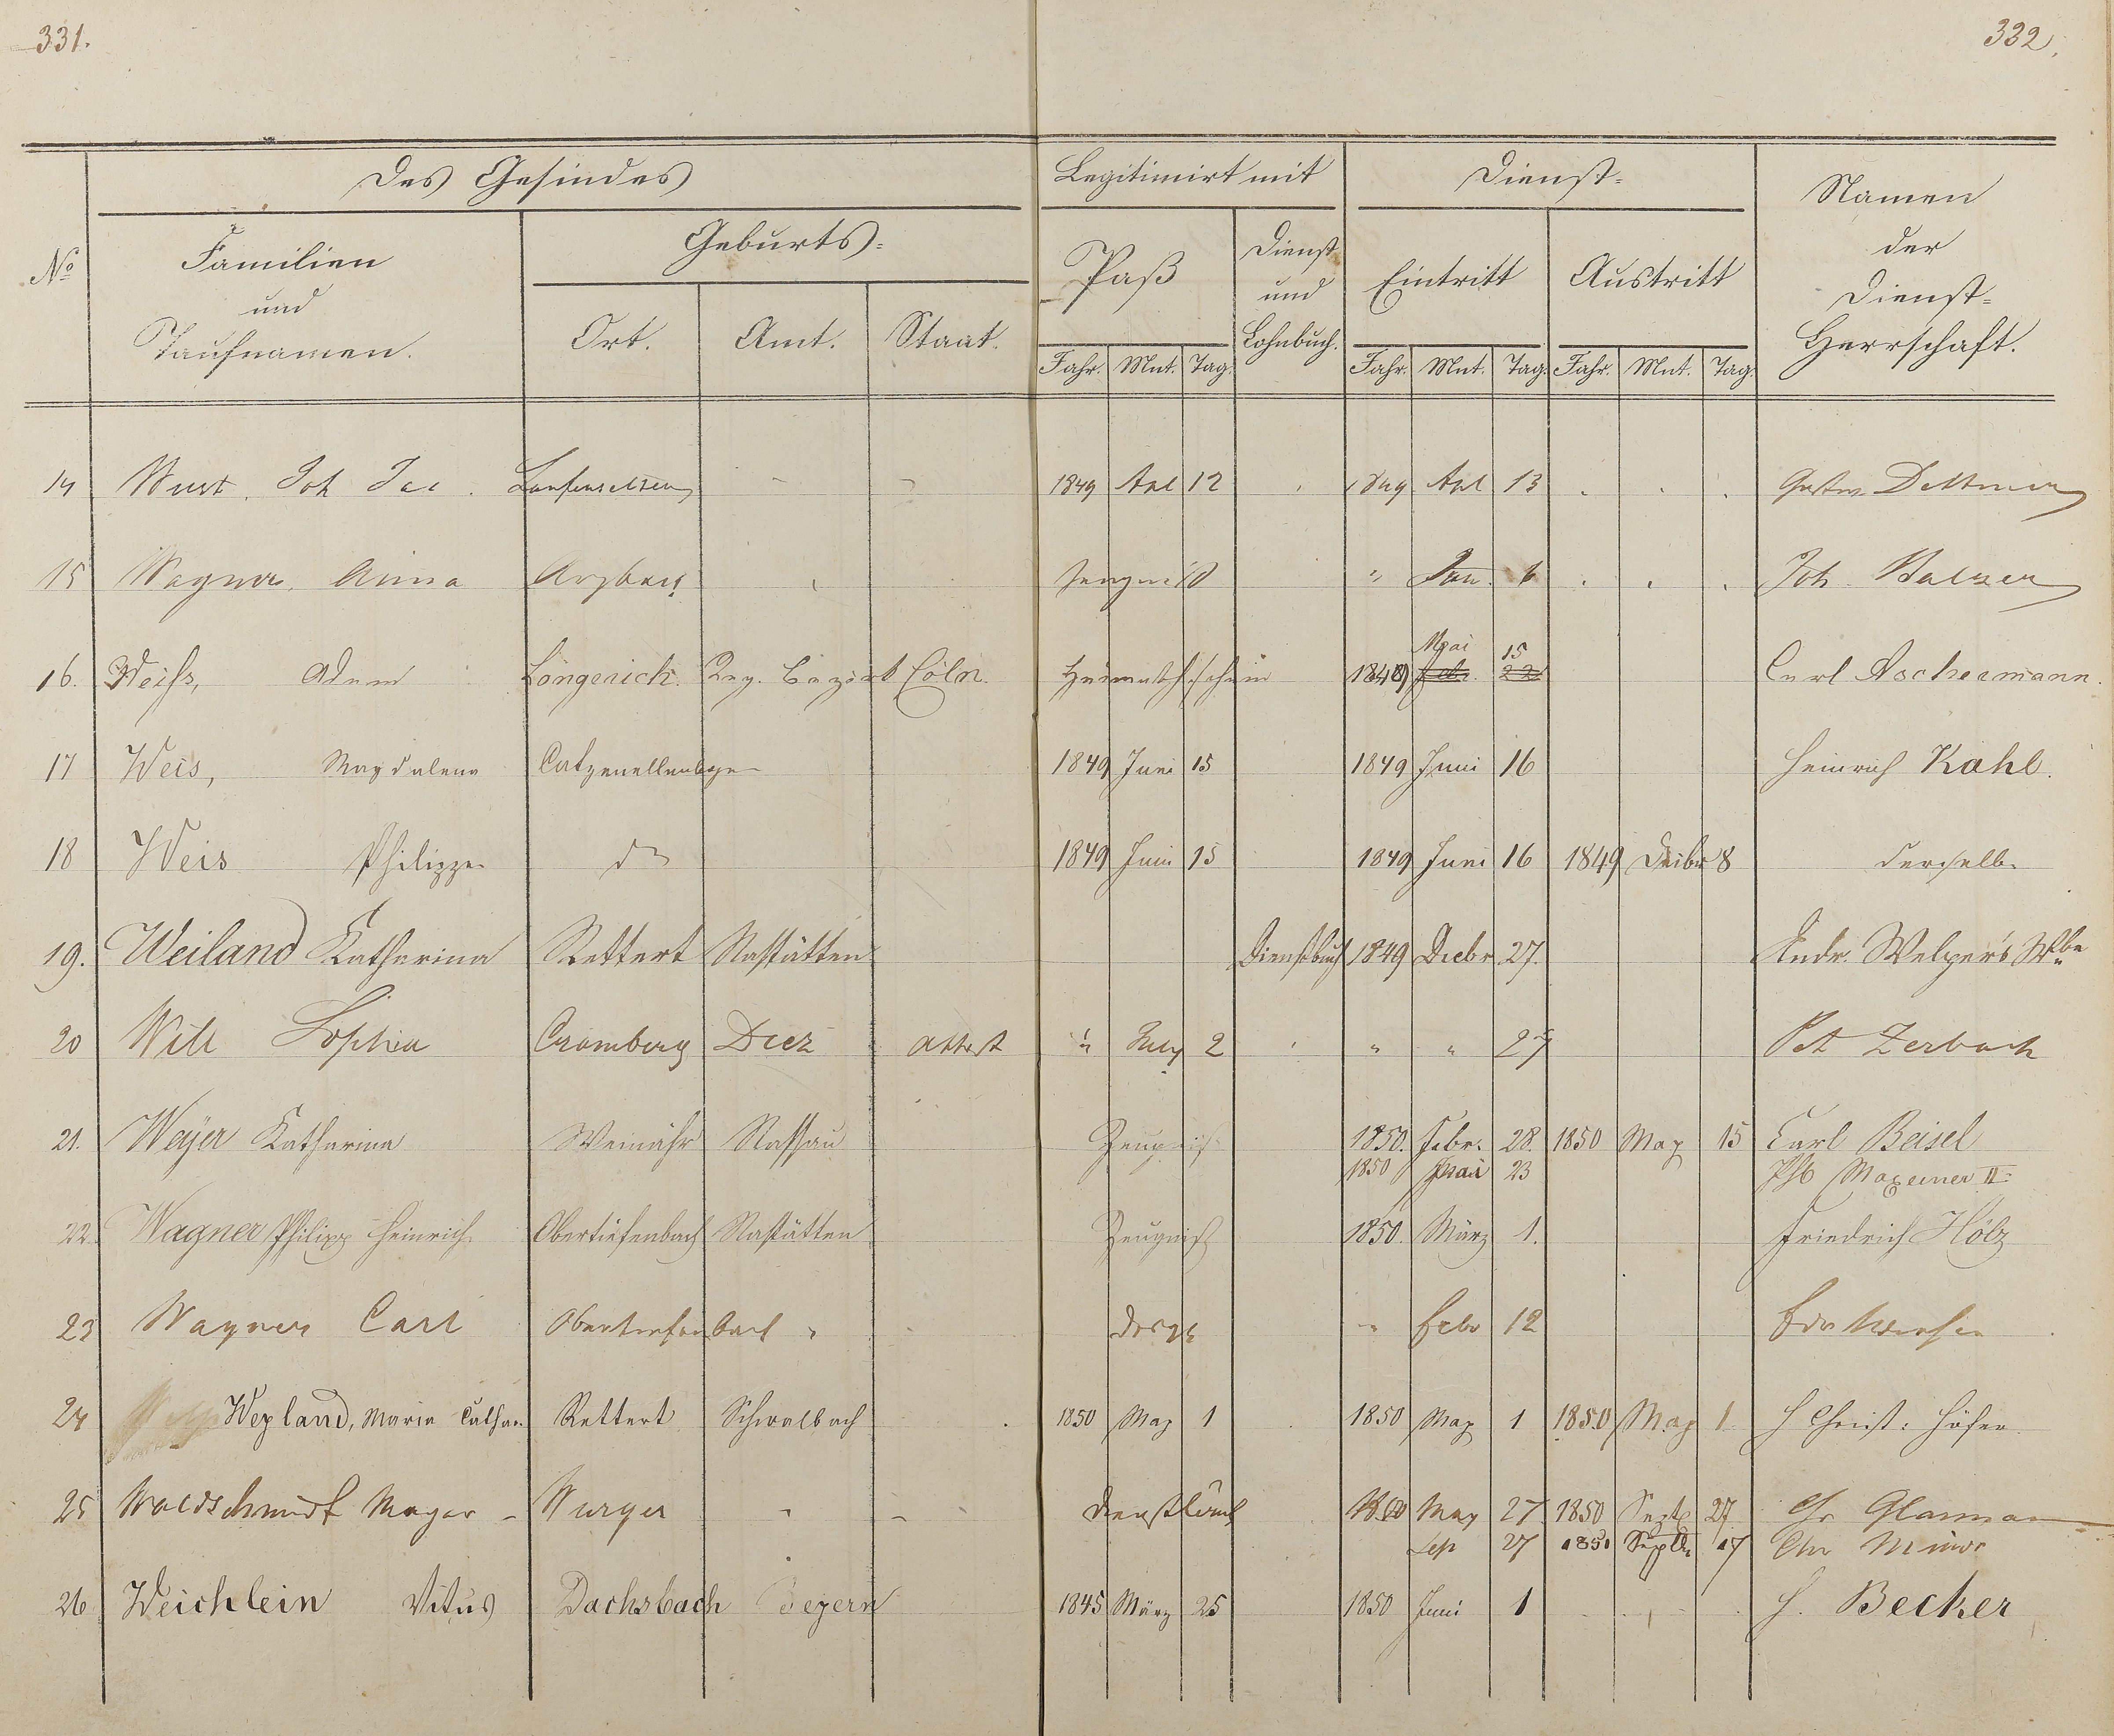 331.
332.
Des Gesindes
Legitimirt mit
Dienst=
Namen der Dienst=Herrschaft.
No
Familien und Taufnamen.
Geburts=
Paß
Dienst und Lohnbuch.
Eintritt
Austritt
Ort. Amt. Staat.
Jahr. Mnt. Tag. Jahr. Mnt. Tag. Jahr. Mnt. Tag.
14 Wust, Joh Jac. 1849 Apl 12 1849 Apl 13
15 Wagner, Anna Arzbach Zeugniß " Jan. 6 Joh. Balzer
16. Weiss, Adam Longerich. Reg. Bezirk Cöln. Heimathschein 1849 Mai 15 Febr. 22 Carl Aschermann.
17 Weis, Magdalena Catzenellenbogen 1849 Juni 15 1849 Juni 16 Heinrich Kahl.
18 Weis Philippe do 1849 Juni 15 1849 Juni 16 1849 Decbr 8 derselbe
19. Weiland Katharina Rettert Nastätten Dienstbuch 1849 Decbr. 27. Andr. Welper's Wbe
20 Will Sophia Cramberg Diez Attest " July 2 " " 27 Pet Zerbach
21. Weÿer Katharina Weinähr Nassau Zeugniß 1850. Febr. 28. 1850 May 15 Carl Beisel
1850 Mai 23 Maxeiner II
22. Wagner Philipp Heinrich Obertiefenbach Nastätten Zeugniß 1850. März 1. Friedrich Hölz
23 Wagner Carl Obertiefenbach " desgl " Febr 12
24 Weyland, Maria Cathar. Rettert Schwalbach 1850 May 1 1850 May 1 1850 May 1 H Christ: Höfer
25 Waldschmidt Margar Dienstbuch 1850 May 27 1850 Septb 27
Sep 27 1851 Septbr 17 Chr Minor
26 Weichlein Vitus Dachsbach Beyern 1845 März 25 1850 Juni 1 H. Becker